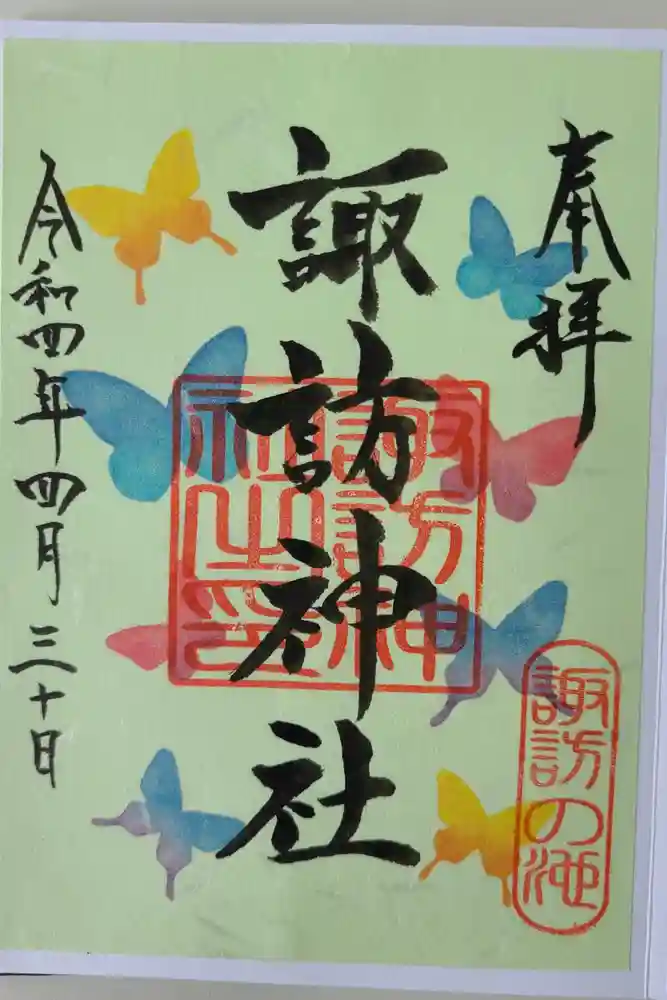 奉拝
諏訪神社
諏訪神社之印
諏訪の池
令和四年四月三十日